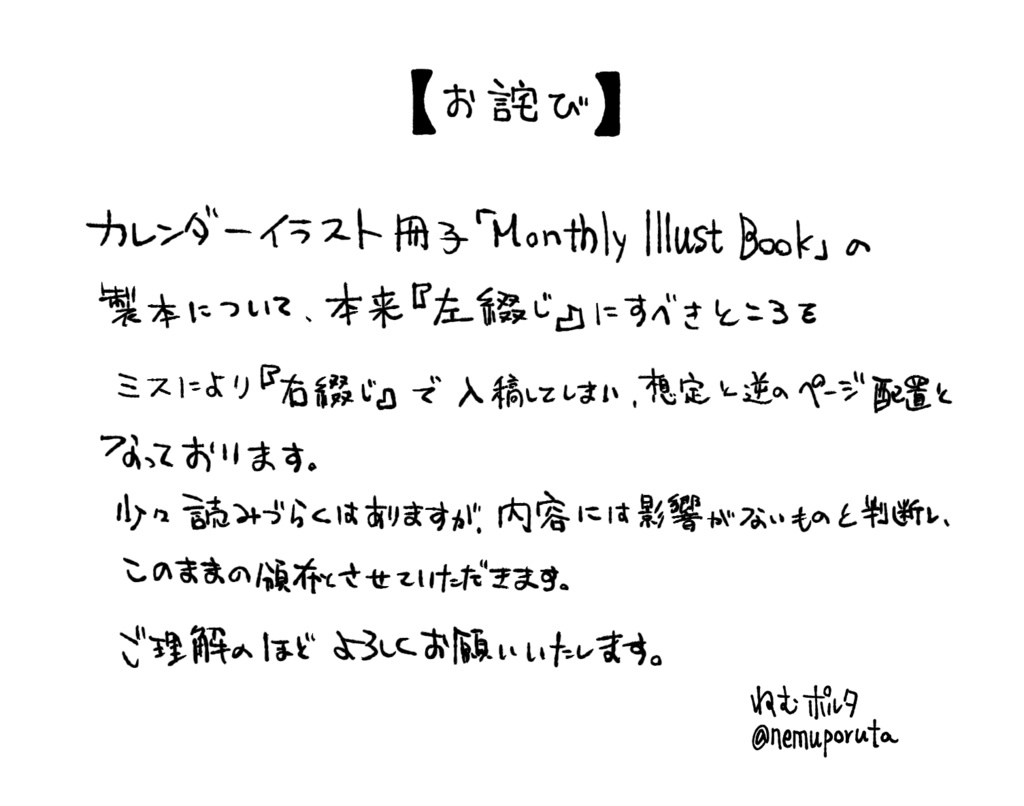 【お詫び】
カレンダーイラスト冊子「Monthly Illust Book」の
製本について、本来『左綴じ』にすべきところを
ミスにより『右綴じ』で入稿してしまい、想定と逆のページ配置と
なっております。
少々読みづらくはありますが、内容には影響がないものと判断し、
このままの頒布とさせていただきます。
ご理解のほどよろしくお願いいたします。
ねむポルタ
@nemuporuta